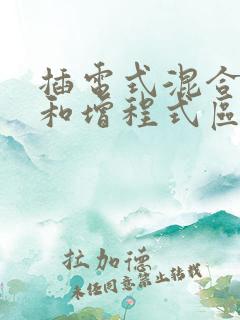 插電式混合
和增程式區
拉加德
未经同意禁止转载